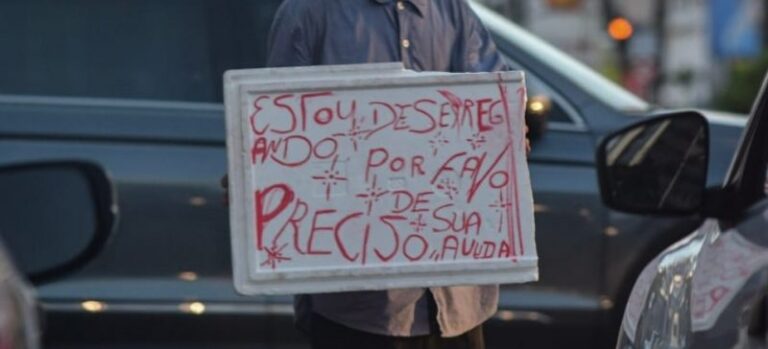 ESTOU DESEPREG
ANDO POR FAVO
DE
PRECISO SUA AUUDA